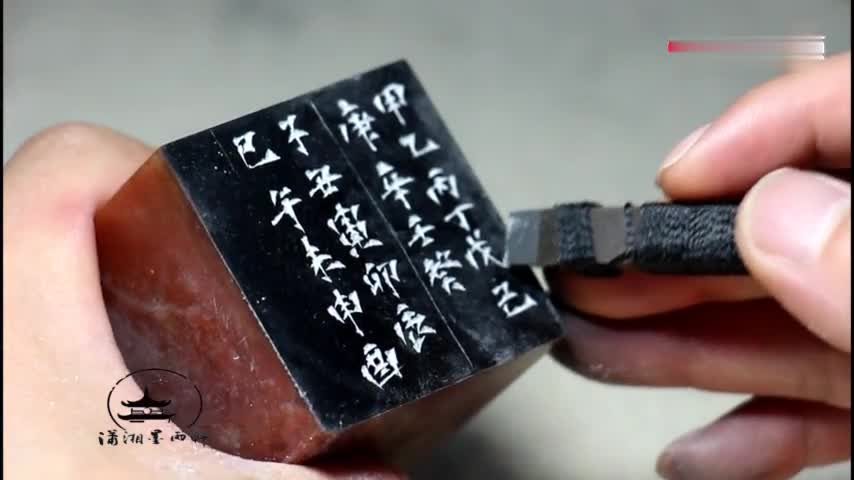 甲乙丙丁戊己
庚辛壬癸
子丑寅卯辰
巳午未申酉
潇湘墨雨轩